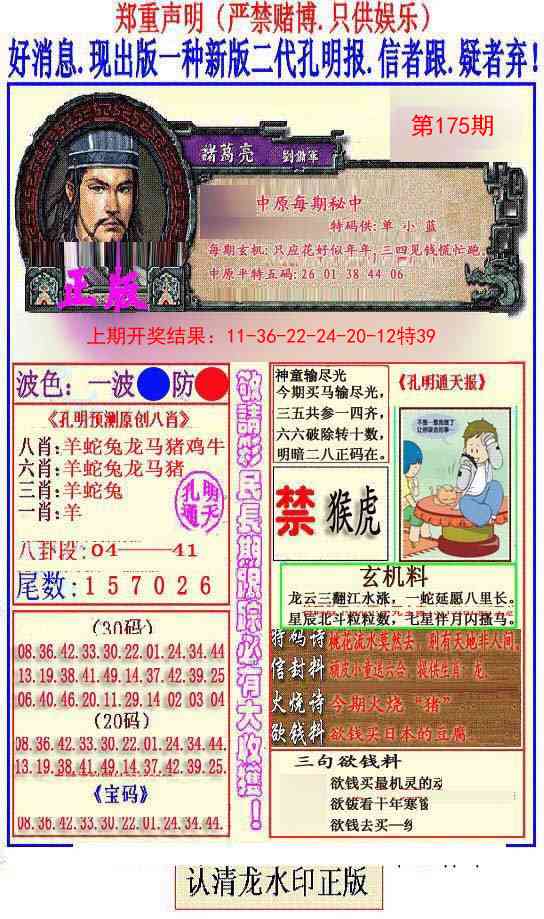 郑重声明（严禁赌博.只供娱乐）
好消息.现出版一种新版二代孔明报.信者跟.疑者弃!
第175期
諸葛亮 劉備軍
中原每期秘中
特码供:单 小 蓝
每期玄机:只应花好似年年,三四见钱慌忙跑.
中原平特五码:26 01 38 44 06
正版
上期开奖结果：11-36-22-24-20-12特39
波色：一波 防
《孔明预测原创八肖》
八肖:羊蛇兔龙马猪鸡牛
六肖:羊蛇兔龙马猪
三肖:羊蛇兔
一肖:羊
孔明
通天
八卦段:04——41
尾数:157026
(30码)
08.36.42.33.30.22.01.24.34.44
13.19.38.41.49.14.37.42.39.25
06.40.46.20.11.29.14 02 03 04
(20码)
08.36.42.33.30.22.01.24.34.44.
13.19.38.41.49.14.37.42.39.25.
《宝码》
08.36.42.33.30.22.01.24.34.44.
敬請彩民長期跟踪必有大收獲！
神童输尽光
今期买马输尽光，
三五共参一四齐，
六六破除转十数，
明暗二八正码在。
《孔明通天报》
禁 猴虎
玄机料
龙云三翻江水涨，一蛇延愿八里长。
星辰北斗粒粒数，七星伴月闪骚乌。
特码诗 桃花流水窅然去，别有天地非人间
信封料 顽皮小童追六合，提供生肖：龙.
火烧诗 今期火烧“猪”
欲钱料 欲钱买日本的豆腐.
三句欲钱料
欲钱买最机灵的动
欲钱看十年寒窗
欲钱去买一
认清龙水印正版